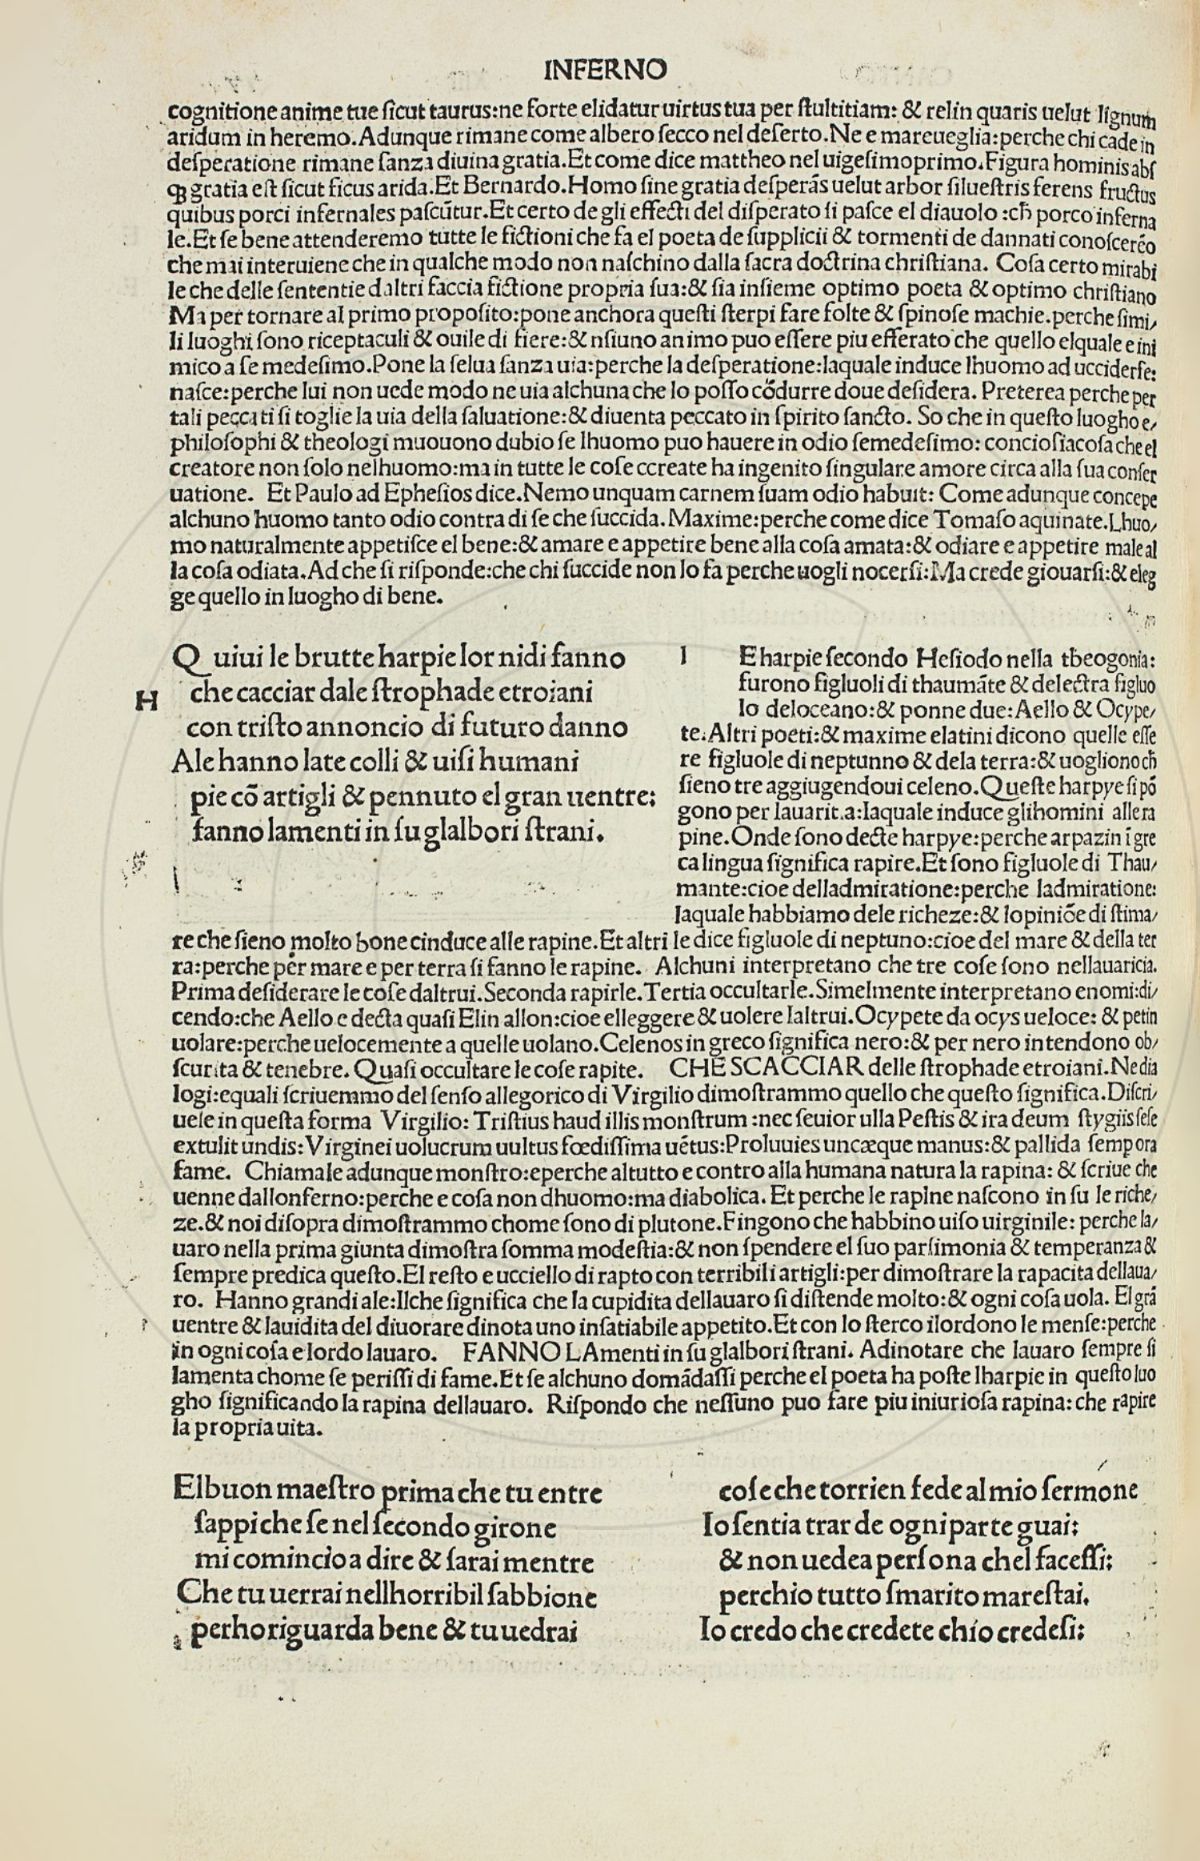 INFERNO
cognitione anime tue ſicut taurus:ne forte elidatur uirtus tua per ſtultitiam: & relin quaris uelut lignum
aridum in heremo.Adunque rimane come albero ſecco nel deſerto.Ne e mareueglia:perche chi cade in
deſperatione rimane ſanza diuina gratia.Et come dice mattheo nel uigeſimoprimo.Figura hominis abſ
qꝫ gratia eſt ſicut ficus arida.Et Bernardo.Homo ſine gratia deſperãs uelut arbor ſilueſtris ferens fructus
quibus porci infernales paſcũtur.Et certo de gli effecti del diſperato ſi paſce el diauolo :ch̄ porco inferna
le.Et ſe bene attenderemo tutte le fictioni che fa el poeta de ſupplicii & tormenti de dannati conoſcerẽo
che mai interuiene che in qualche modo non naſchino dalla ſacra doctrina chriſtiana. Coſa certo mirabi
le che delle ſententie daltri faccia fictione propria ſua:& ſia inſieme optimo poeta & optimo chriſtiano
Ma per tornare al primo propoſito:pone anchora queſti ſterpi fare folte & ſpinoſe machie.perche ſimi/
li luoghi ſono riceptaculi & ouile di fiere:& nſiuno animo puo eſſere piu efferato che quello elquale e ini
mico a ſe medeſimo.Pone la ſelua ſanza uia:perche la deſperatione:laquale induce lhuomo ad ucciderſe:
naſce:perche lui non uede modo ne uia alchuna che lo poſſo cõdurre doue deſidera. Preterea perche per
tali peccati ſi toglie la uia della ſaluatione:& diuenta peccato in ſpirito ſancto. So che in queſto luogho e/
philoſophi & theologi muouono dubio ſe lhuomo puo hauere in odio ſemedeſimo: concioſiacoſa che el
creatore non ſolo nelhuomo:ma in tutte le coſe ccreate ha ingenito ſingulare amore circa alla ſua conſer
uatione. Et Paulo ad Epheſios dice.Nemo unquam carnem ſuam odio habuit: Come adunque concepe
alchuno huomo tanto odio contra di ſe che ſuccida.Maxime:perche come dice Tomaſo aquinate.Lhuo/
mo naturalmente appetiſce el bene:& amare e appetire bene alla coſa amata:& odiare e appetire male al
la coſa odiata.Ad che ſi riſponde:che chi ſuccide non lo fa perche uogli nocerſi:Ma crede giouarſi:& eleg
ge quello in luogho di bene.
Q uiui le brutte harpie lor nidi fanno
H che cacciar dale ſtrophade etroiani
con triſto annoncio di futuro danno
Ale hanno late colli & uiſi humani
pie cõ artigli & pennuto el gran uentre:
fanno lamenti in ſu glalbori ſtrani.
l Eharpie ſecondo Heſiodo nella theogonia:
furono figluoli di thaumãte & delectra figluo
lo deloceano:& ponne due:Aello & Ocype/
te:Altri poeti:& maxime elatini dicono quelle eſſe
re figluole di neptunno & dela terra:& uogliono ch̄
ſieno tre aggiugendoui celeno.Queſte harpye ſi põ
gono per lauarit.a:laquale induce glihomini alle ra
pine.Onde ſono decte harpye:perche arpazin ĩ gre
ca lingua ſignifica rapire.Et ſono figluole di Thau/
mante:cioe delladmiratione:perche ladmiratione:
laquale habbiamo dele richeze:& lopiniõe di ſtima/
re che ſieno molto bone cinduce alle rapine.Et altri le dice figluole di neptuno:cioe del mare & della ter
ra:perche per mare e per terra ſi fanno le rapine. Alchuni interpretano che tre coſe ſono nellauaricia.
Prima deſiderare le coſe daltrui.Seconda rapirle.Tertia occultarle.Simelmente interpretano enomi:di/
cendo:che Aello e decta quaſi Elin allon:cioe elleggere & uolere laltrui.Ocypete da ocys ueloce: & petin
uolare:perche uelocemente a quelle uolano.Celenos in greco ſignifica nero:& per nero intendono ob/
ſcurita & tenebre. Quaſi occultare le coſe rapite. CHE SCACCIAR delle ſtrophade etroiani.Ne dia
logi:equali ſcriuemmo del ſenſo allegorico di Virgilio dimoſtrammo quello che queſto ſignifica.Diſcri/
uele in queſta forma Virgilio: Triſtius haud illis monſtrum :nec ſeuior ulla Peſtis & ira deum ſtygiis ſeſe
extulit undis:Virginei uolucrum uultus fœdiſſima uẽtus:Proluuies uncæque manus:& pallida ſemp ora
fame. Chiamale adunque monſtro:eperche altutto e contro alla humana natura la rapina: & ſcriue che
uenne dallonferno:perche e coſa non dhuomo:ma diabolica. Et perche le rapine naſcono in ſu le riche/
ze.& noi diſopra dimoſtrammo chome ſono di plutone.Fingono che habbino uiſo uirginile: perche la/
uaro nella prima giunta dimoſtra ſomma modeſtia:& non ſpendere el ſuo parſimonia & temperanza &
ſempre predica queſto.El reſto e ucciello di rapto con terribili artigli:per dimoſtrare la rapacita dellaua/
ro. Hanno grandi ale:Ilche ſignifica che la cupidita dellauaro ſi diſtende molto:& ogni coſa uola. El grã
uentre & lauidita del diuorare dinota uno inſatiabile appetito.Et con lo ſterco ilordono le menſe:perche
in ogni coſa e lordo lauaro. FANNO LAmenti in ſu glalbori ſtrani. Adinotare che lauaro ſempre ſi
lamenta chome ſe periſſi di fame.Et ſe alchuno domãdaſſi perche el poeta ha poſte lharpie in queſto luo
gho ſignificando la rapina dellauaro. Riſpondo che neſſuno puo fare piu iniurioſa rapina: che rapire
la propria uita.
Elbuon maeſtro prima che tu entre
ſappi che ſe nel ſecondo girone
mi comincio a dire & ſarai mentre
Che tu uerrai nellhorribil ſabbione
perho riguarda bene & tu uedrai
coſe che torrien fede al mio ſermone
Io ſentia trar de ogni parte guai:
& non uedea perſona chel faceſſi:
perchio tutto ſmarito mareſtai.
Io credo che credete chio credeſi: